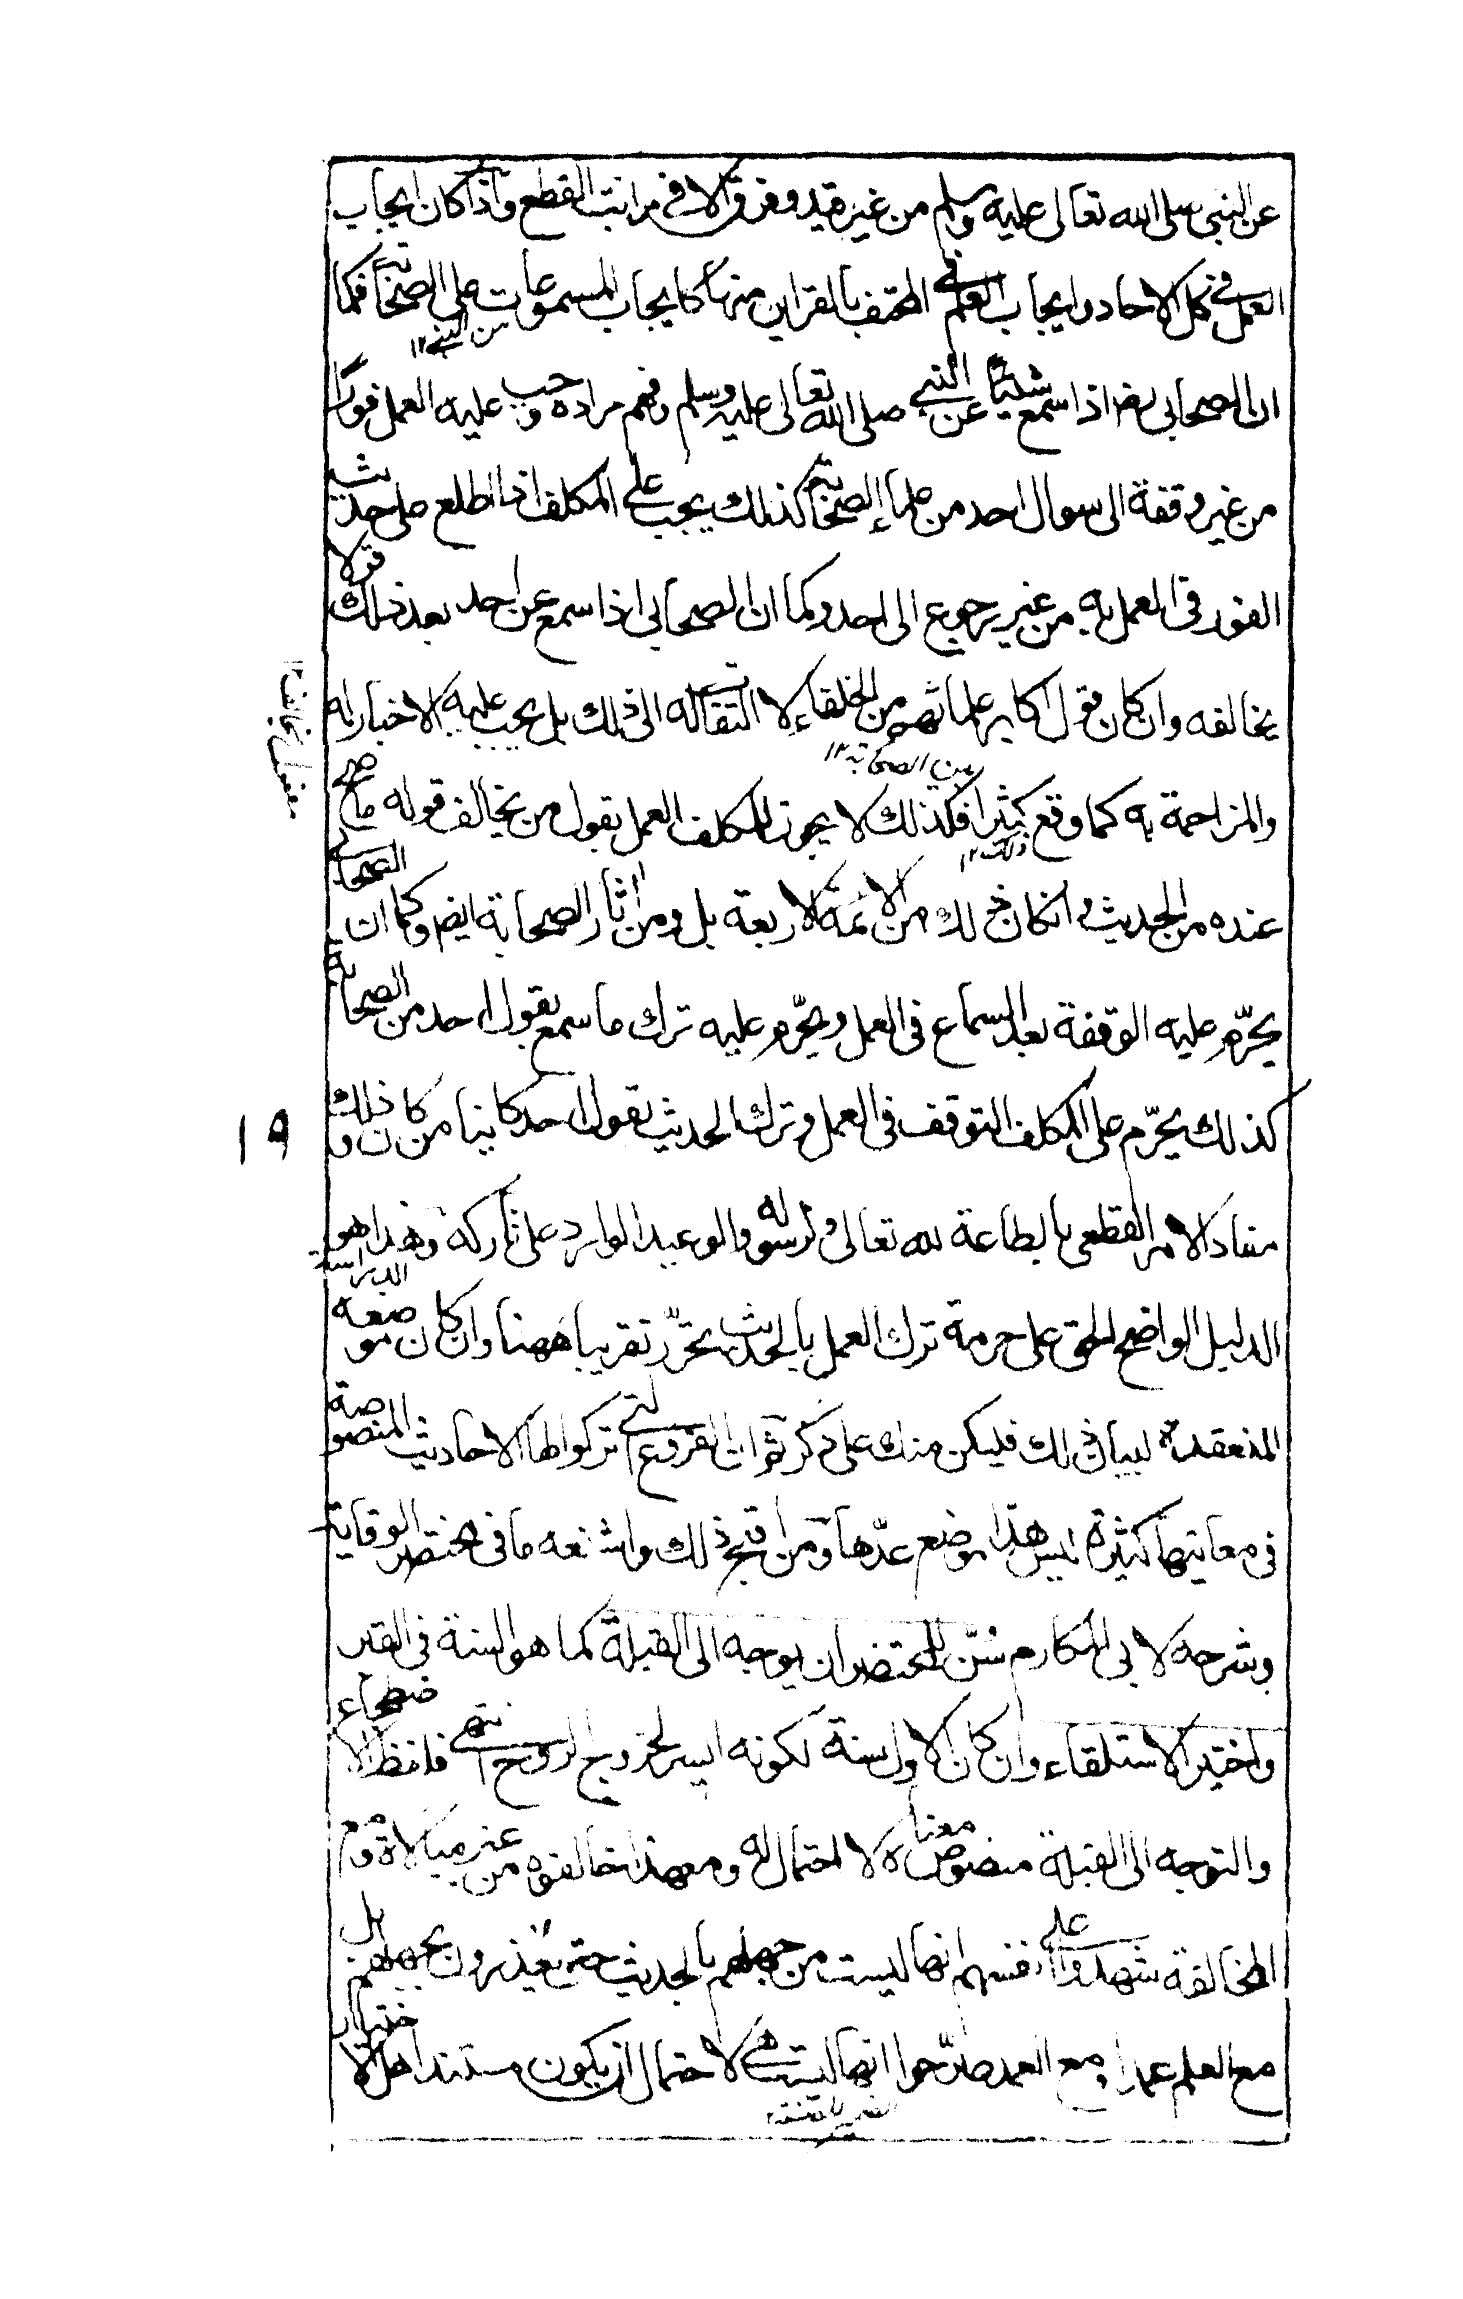 عن النبي صلى الله تعالى عليه وسلم من غير قيد وفرق الا في مراتب القطع واذا كان ايجاب
العمل في كل الاحاد وايجاب العلم في المحتف بالقراين منها كايجاب المسموعات على الصحابة فكما
من النبي ١٢
ان الصحابي رض اذا سمع شيئا عن النبي صلى الله تعالى عليه وسلم وفهم مراده وجب عليه العمل فورا
من غير وقفة الى سوال احد من علماء الصحابة كذلك يجب على المكلف اذا اطلع على حديث
الفور في العمل به من غير رجوع الى احد وكما ان الصحابي اذا سمع عن احد بعد ذلك قولا
يخالفه وان كان قول اكابر علمائهم من الخلفاء لا التفات له الى ذلك بل يجب عليه الاخبار له
بين الصحابة ١٢
والمزاحمة به كما وقع كثيرا فكذلك لا يجوز للمكلف العمل بقول من يخالف قوله ما صح
ذلك ١٢
عنده من الحديث وان كان ذلك من الائمة الاربعة بل ومن اثار الصحابة ايضا وكما ان الصحابي
يحرّم عليه الوقفة بعد السماع في العمل ويحرّم عليه ترك ما سمع بقول احد من الصحابة
كذلك يحرّم على المكلف التوقف في العمل وترك الحديث بقول احد كاينا من كان وذلك
١٩
مفاد الامر القطعي بالطاعة لله تعالى ولرسوله والوعيد الوارد على تاركه وهذا هو
الدليل الواضح الحق على حرمة ترك العمل بالحديث تحرّر تقريبا ههنا وان كان موضعه
الدراسة
المنعقدة لبيان ذلك فليكن منك على ذكر ثم ان الفروع التي تركوا لها الاحاديث المنصوصة
في معانيها كثيرة ليس هذا موضع عدّها ومن اقبح ذلك واشنعه ما في مختصر الوقاية
وشرحه لابي المكارم سُنّ للمحتضر ان يوجه الى القبلة كما هو السنة في القبر
واختير الاستلقاء وان كان الاول سنة لكونه ايسر لخروج الروح انتهى فانظر الاضطجاع
والتوجه الى القبلة منصوص معناه لا احتمال له ومع هذا خالفوه من غير مبالاة ومع
المخالفة شهدوا على انفسهم انها ليست من جهلهم بالحديث حتى يعذرون بجهلهم بل
مع العلم عمدا ومع العمد صرّحوا انها ليست هي لاحتمال ان يكون مستند اهل الاختيار